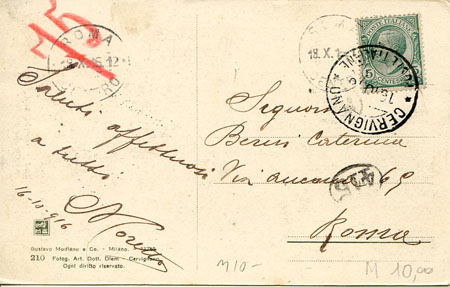 ROMA
18.X.16.12
Saluti affettuosi
a tutti
16-10-916
Gustavo Modiano e Co. - Milano.
210 Fotog. Art. Dott. Diem - Cervignano
Ogni diritto riservato.
18.X.1
POSTE ITALIANE
CERVIGNANO
Signora
Berni Caterina
Via ancona 69
Roma
M10-
M 10,00